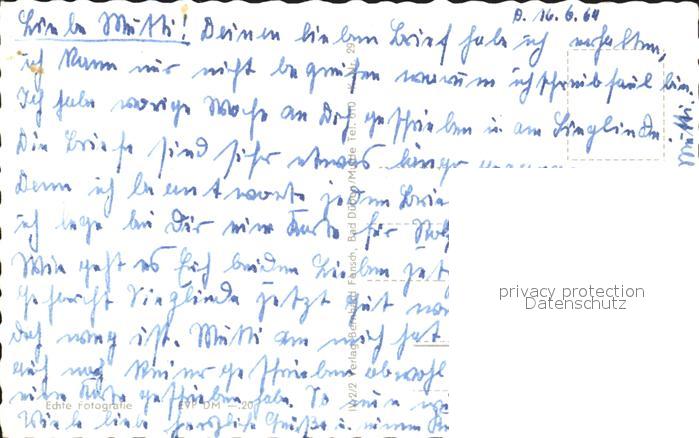 D. 16.6.64
Liebe Mutti! Deinen lieben Brief habe ich erhalten,
ich kann nur nicht begreifen warum ich schreibfaul bin.
Ich habe vorige Woche an Dich geschrieben u. an Sieglinde
Die Briefe sind sehr etwas länger
Denn ich beantworte jeden Brie
ich lege bei Dir eine Karte für
Wie geht es Euch beiden Lieben jet
Sieglinde jetzt mit
doch weg ist. Mutti an mich hat
auch noch keiner geschrieben obwohl
eine Karte geschrieben habe. So nun
Viele liebe herzliche Grüße u. einen
Echte Fotografie EVP DM —.20
Verlag Bernhard Fensch, Bad Düben/Mulde Tel. 610
privacy protection
Datenschutz